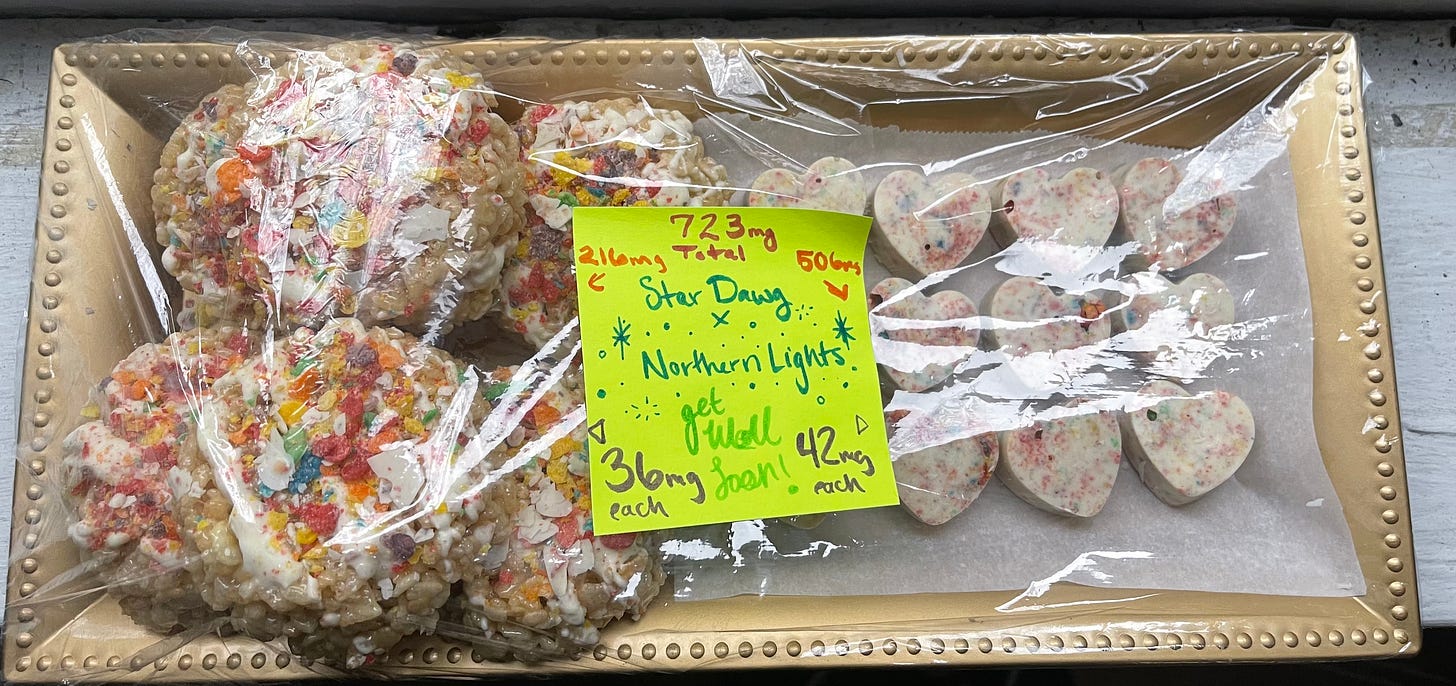 723mg
Total
216mg
506mg
Star Dawg
x
Northern Lights
get
Well
Soon!
36mg
each
42mg
each